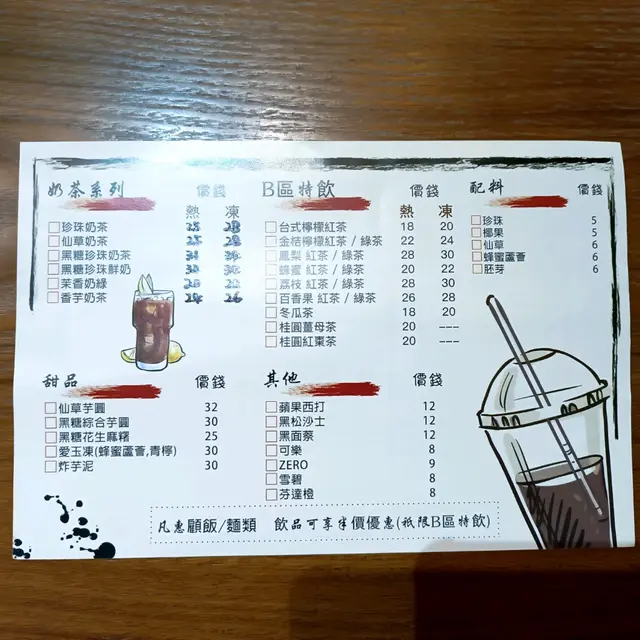 奶茶系列 價錢
熱 凍
珍珠奶茶
仙草奶茶
黑糖珍珠奶茶
黑糖珍珠鮮奶
茉香奶綠
香芋奶茶
B區特飲 價錢
熱 凍
台式檸檬紅茶 18 20
金桔檸檬紅茶 / 綠茶 22 24
鳳梨 紅茶 / 綠茶 28 30
蜂蜜 紅茶 / 綠茶 20 22
荔枝 紅茶 / 綠茶 28 30
百香果 紅茶 / 綠茶 26 28
冬瓜茶 18 20
桂圓薑母茶 20 ---
桂圓紅棗茶 20 ---
配料 價錢
珍珠 5
椰果 5
仙草 6
蜂蜜蘆薈 6
胚芽 6
甜品 價錢
仙草芋圓 32
黑糖綜合芋圓 30
黑糖花生麻糬 25
愛玉凍(蜂蜜蘆薈,青檸) 30
炸芋泥 30
其他 價錢
蘋果西打 12
黑松沙士 12
黑面蔡 12
可樂 8
ZERO 9
雪碧 8
芬達橙 8
凡惠顧飯/麵類 飲品可享半價優惠(祇限B區特飲)